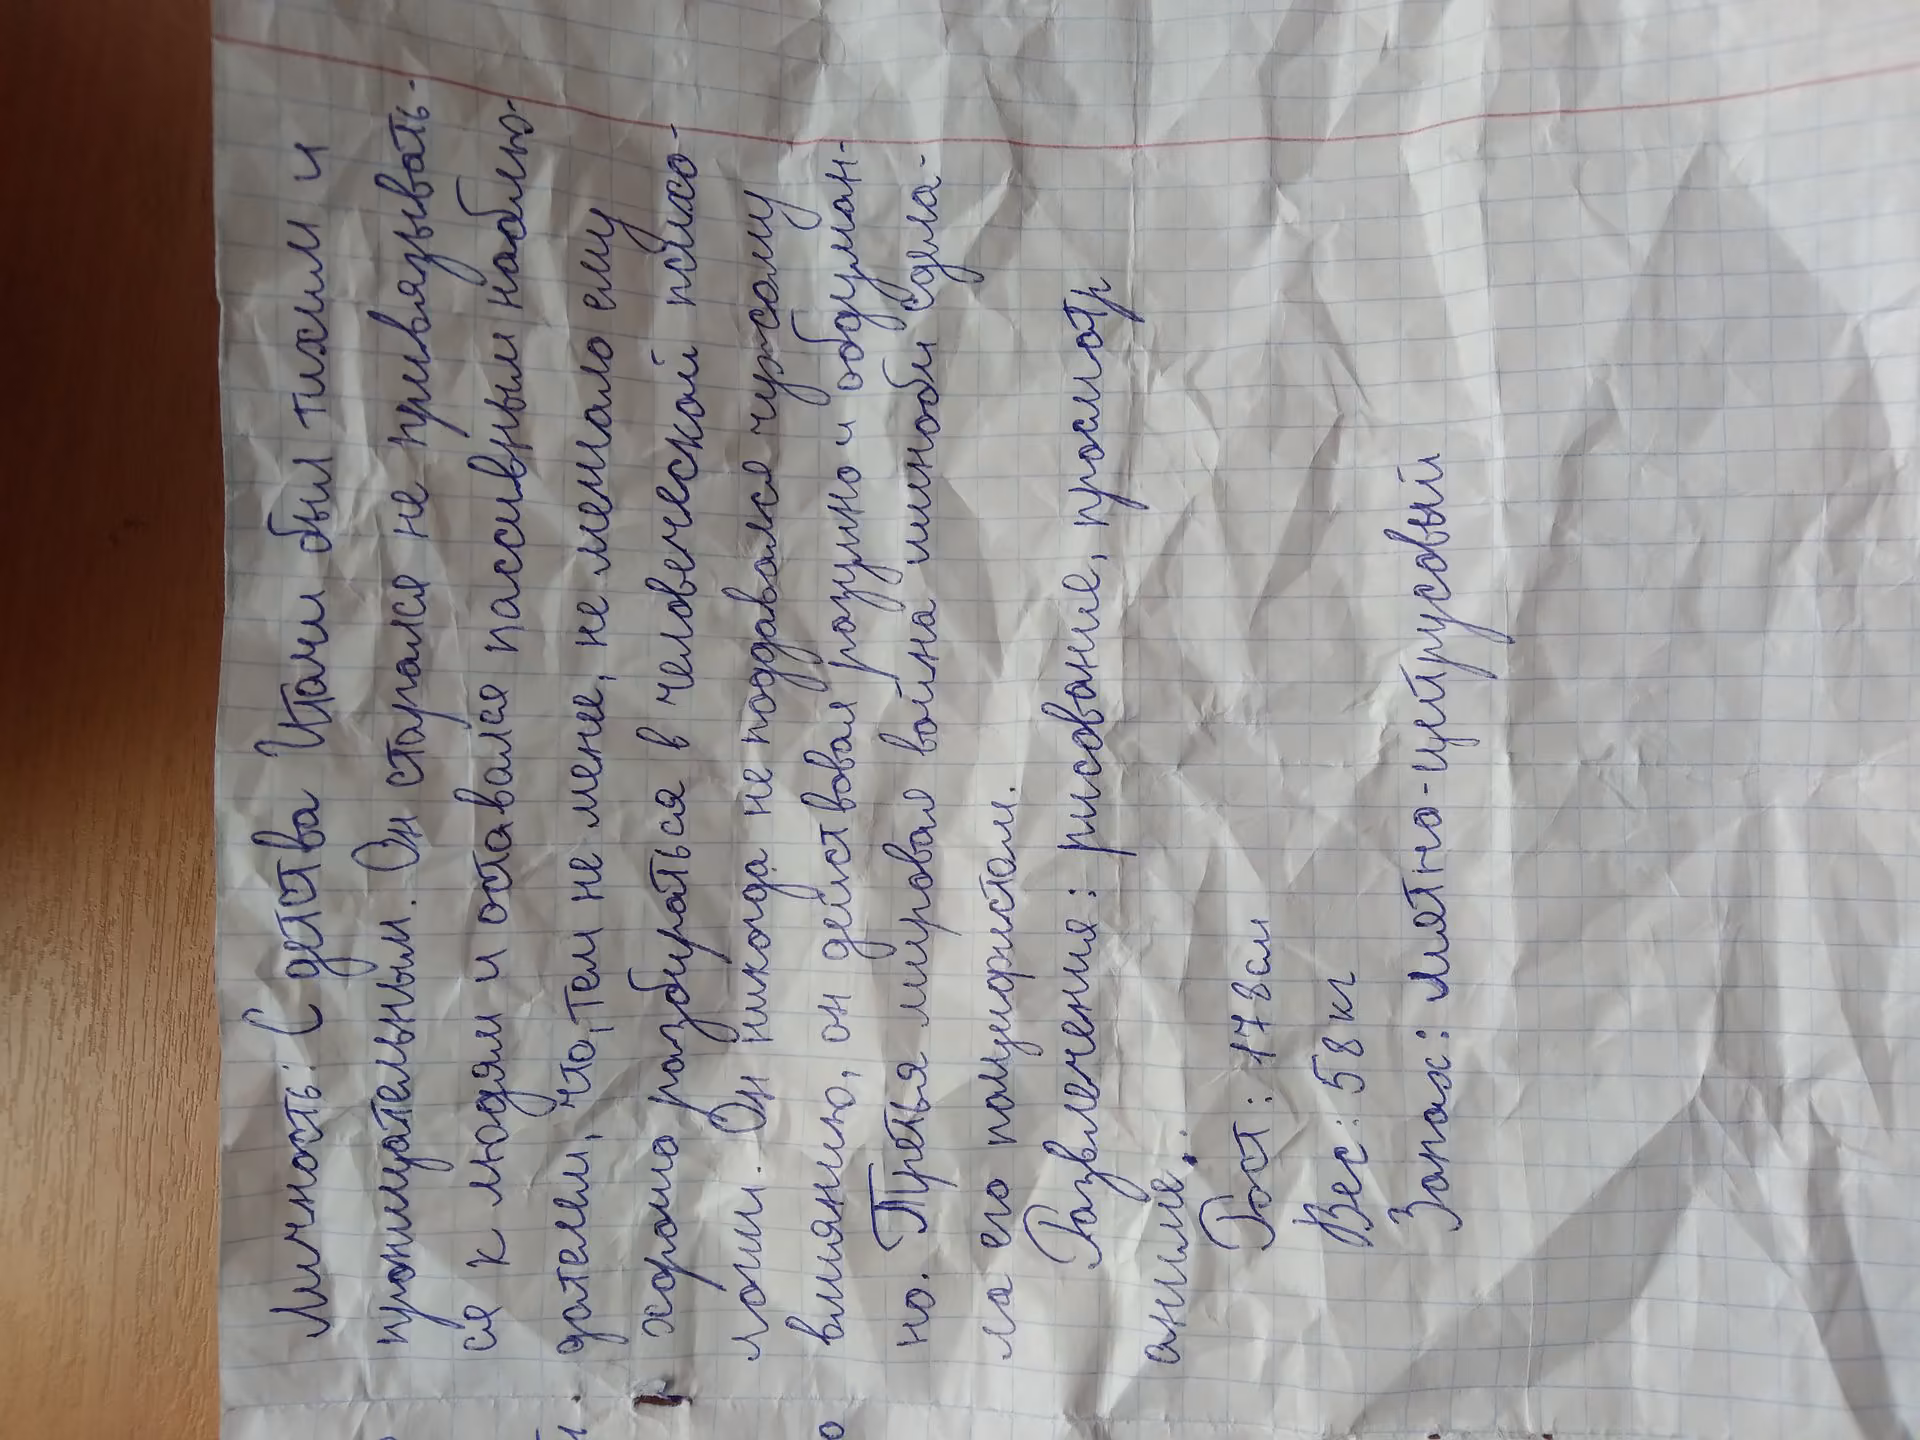 Личность: С детства Итачи был тихим и
проницательным. Он старался не привязывать-
ся к людям и оставался пассивным наблю-
дателем, что, тем не мене, не мешало ему
хорошо разбираться в человеческой психо-
логии. Он никогда не поддавался чужому
влиянию, он действовал разумно и обдуман-
но. Третья мировая война шиноби сдела-
ла его пацифистом.
Развлечение: рисование, просмотр
аниме.
Рост: 178см
Вес: 58 кг
Запах: мятно-цитрусовый